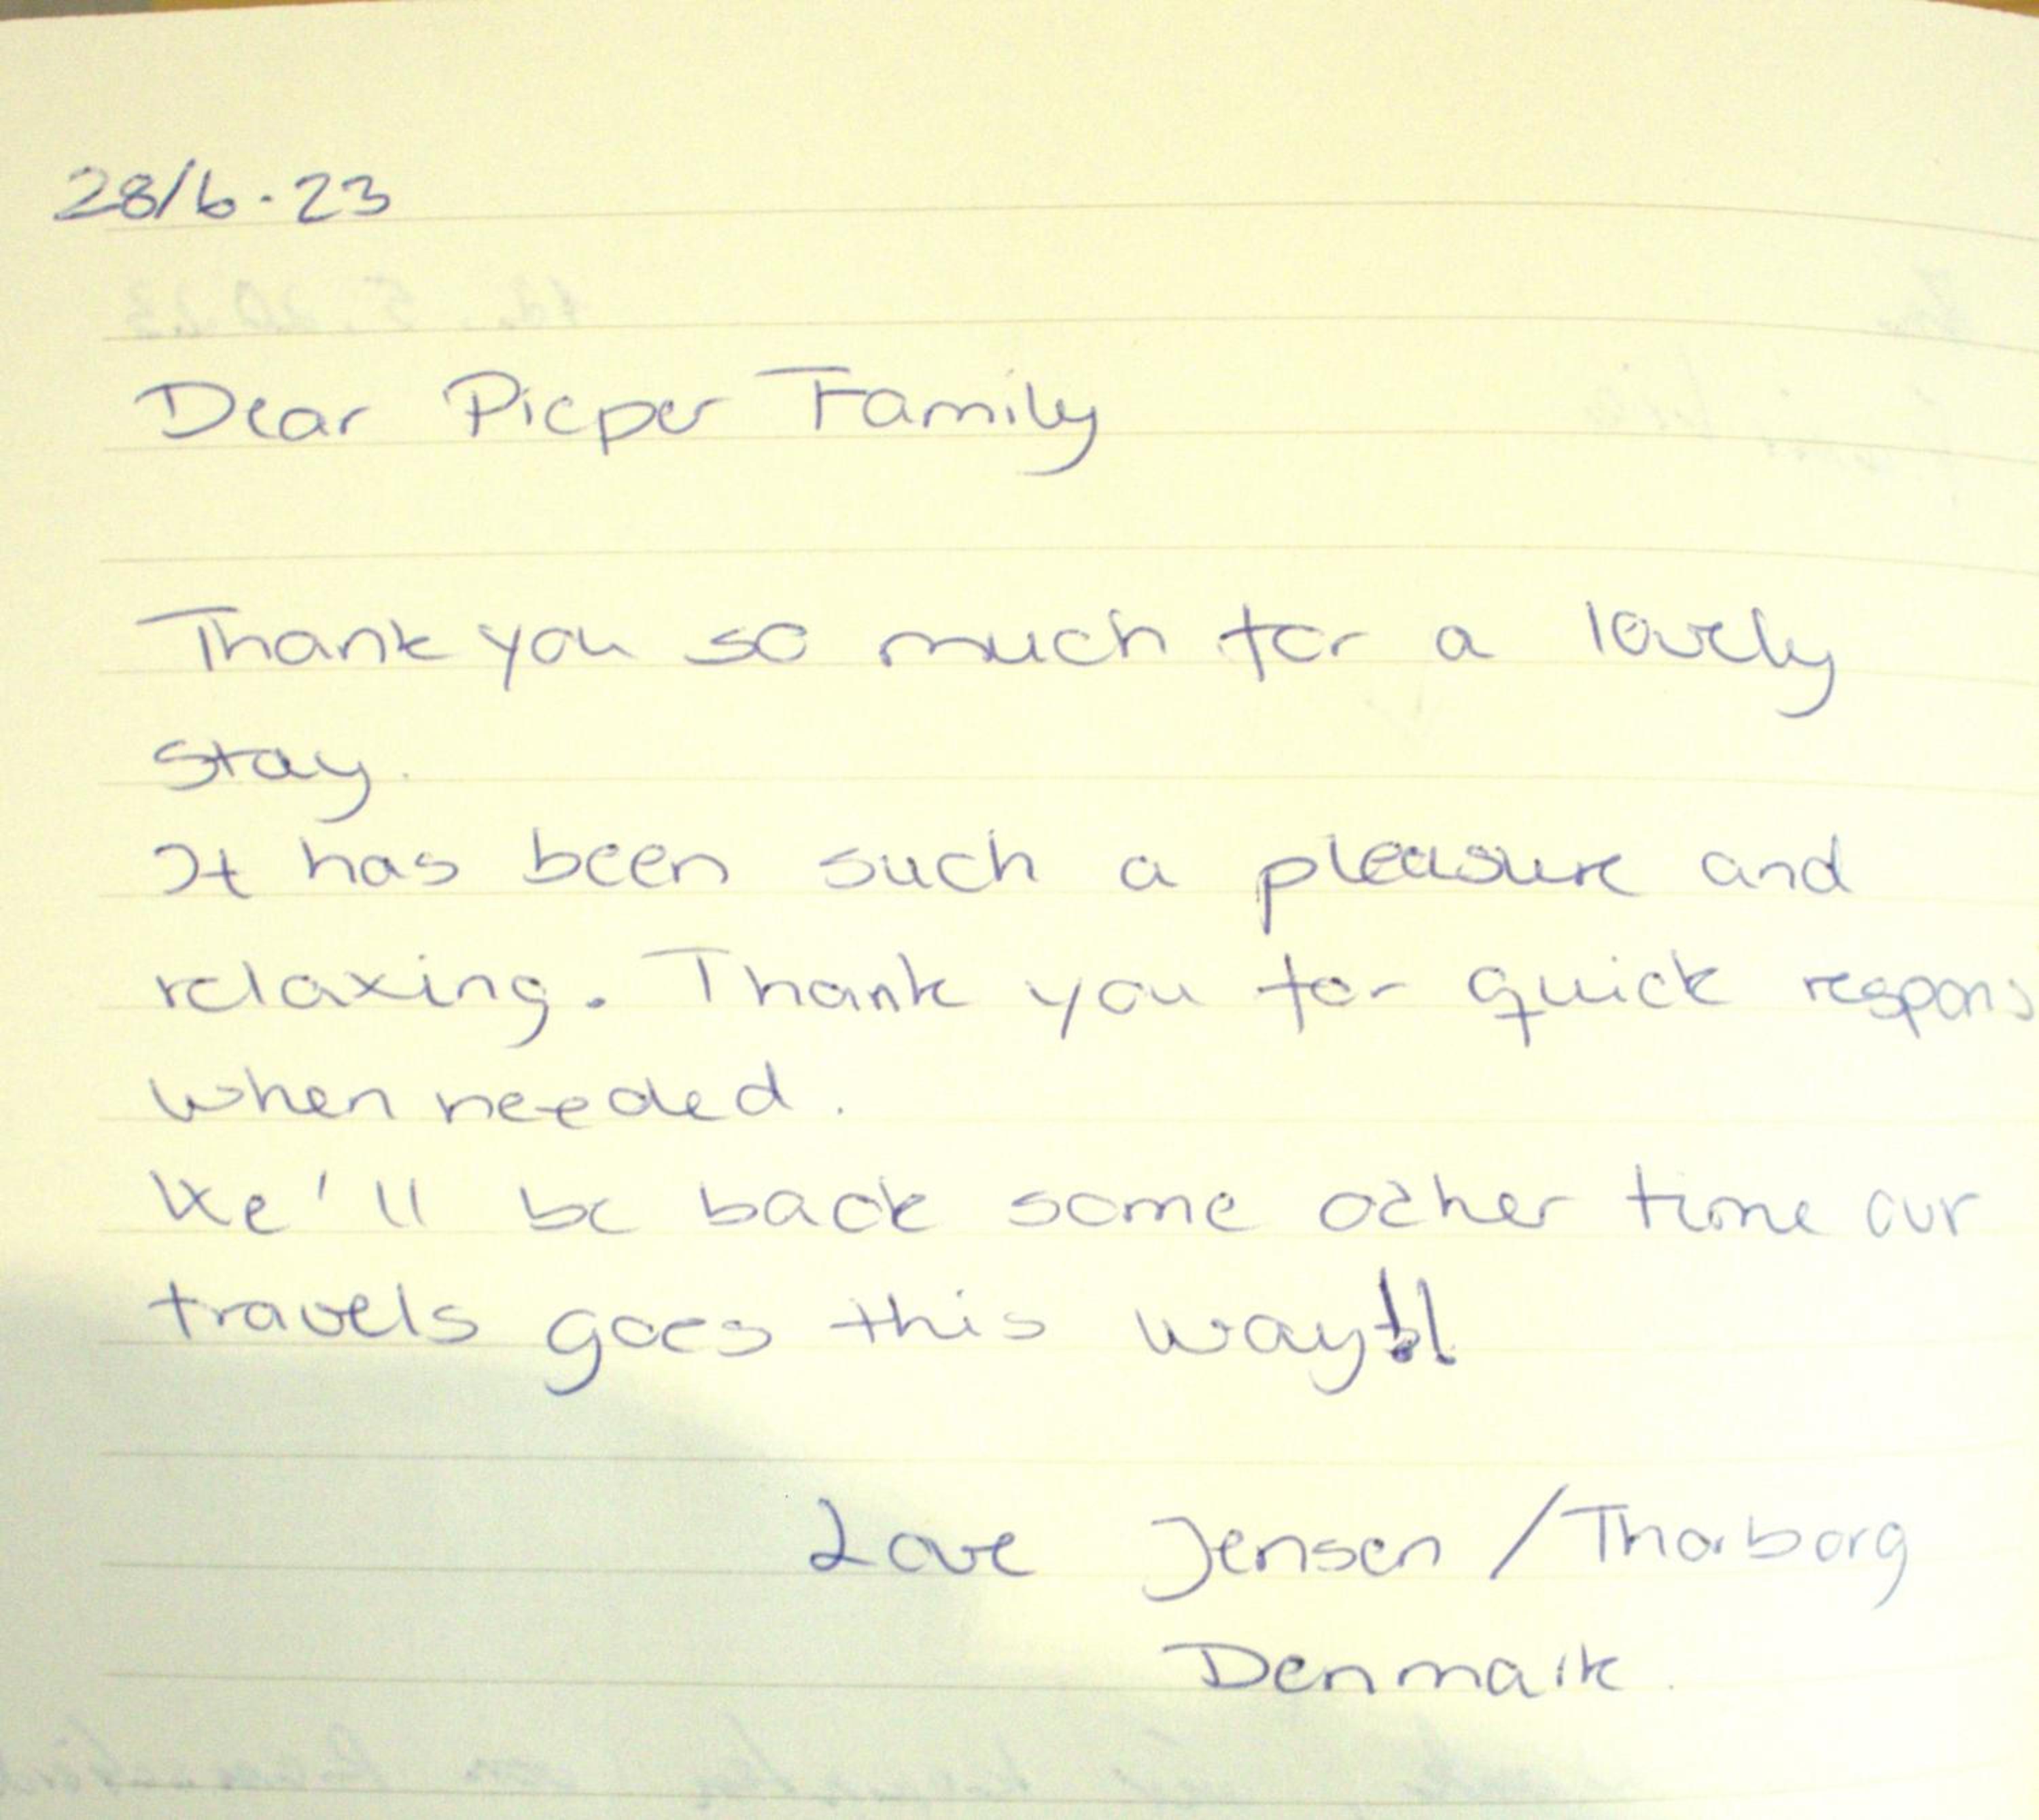 28/6.23
Dear Pieper Family
Thank you so much for a lovely
stay.
It has been such a pleasure and
relaxing. Thank you for quick respons
when needed.
We'll be back some other time our
travels goes this way!!
Love Jensen / Thorborg
Denmark.